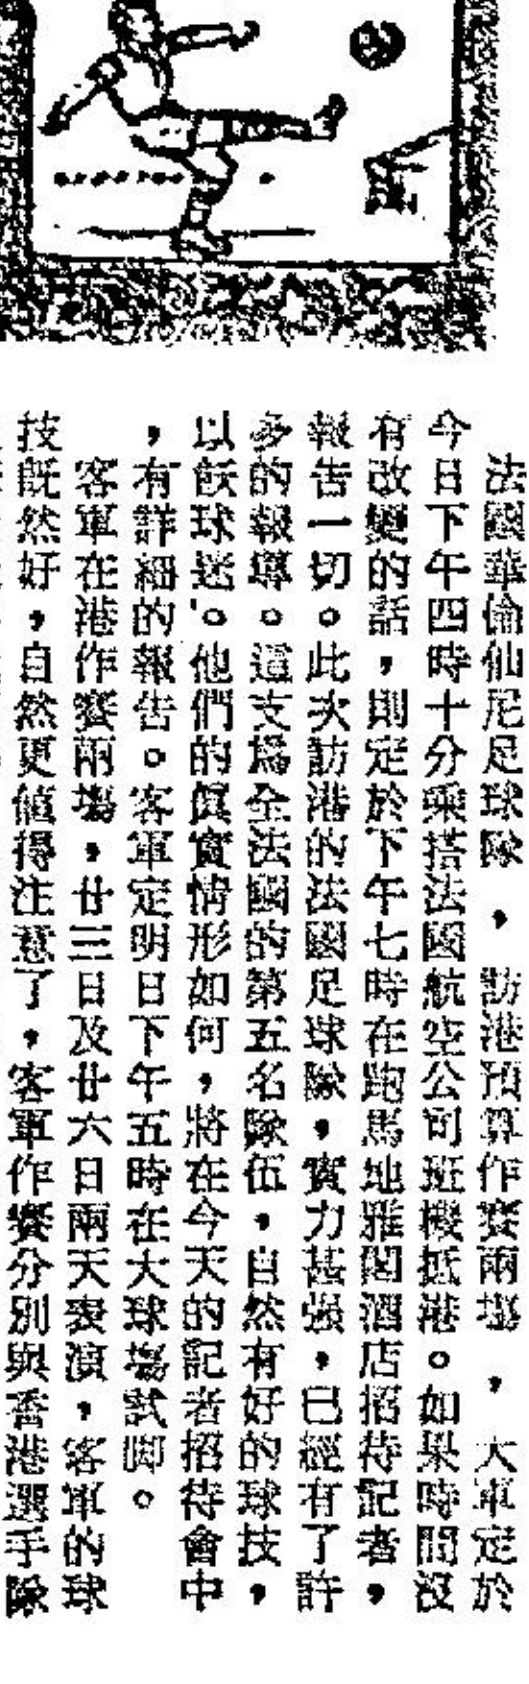 法國華倫仙尼足球隊，訪港預算作賽兩塲，大軍定於
今日下午四時十分乘搭法國航空公司班機抵港。如果時間沒
有改變的話，則定於下午七時在跑馬地雅閣酒店招待記者，
報告一切。此次訪港的法國足球隊，實力甚強，已經有了許
多的報導。這支爲全法國的第五名隊伍，自然有好的球技，
以飫球迷。他們的眞實情形如何，將在今天的記者招待會中
，有詳細的報告。客軍定明日下午五時在大球塲試脚。
客軍在港作賽兩塲，廿三日及廿六日兩天表演，客軍的球
技既然好，自然更値得注意了，客軍作賽分別與香港選手隊